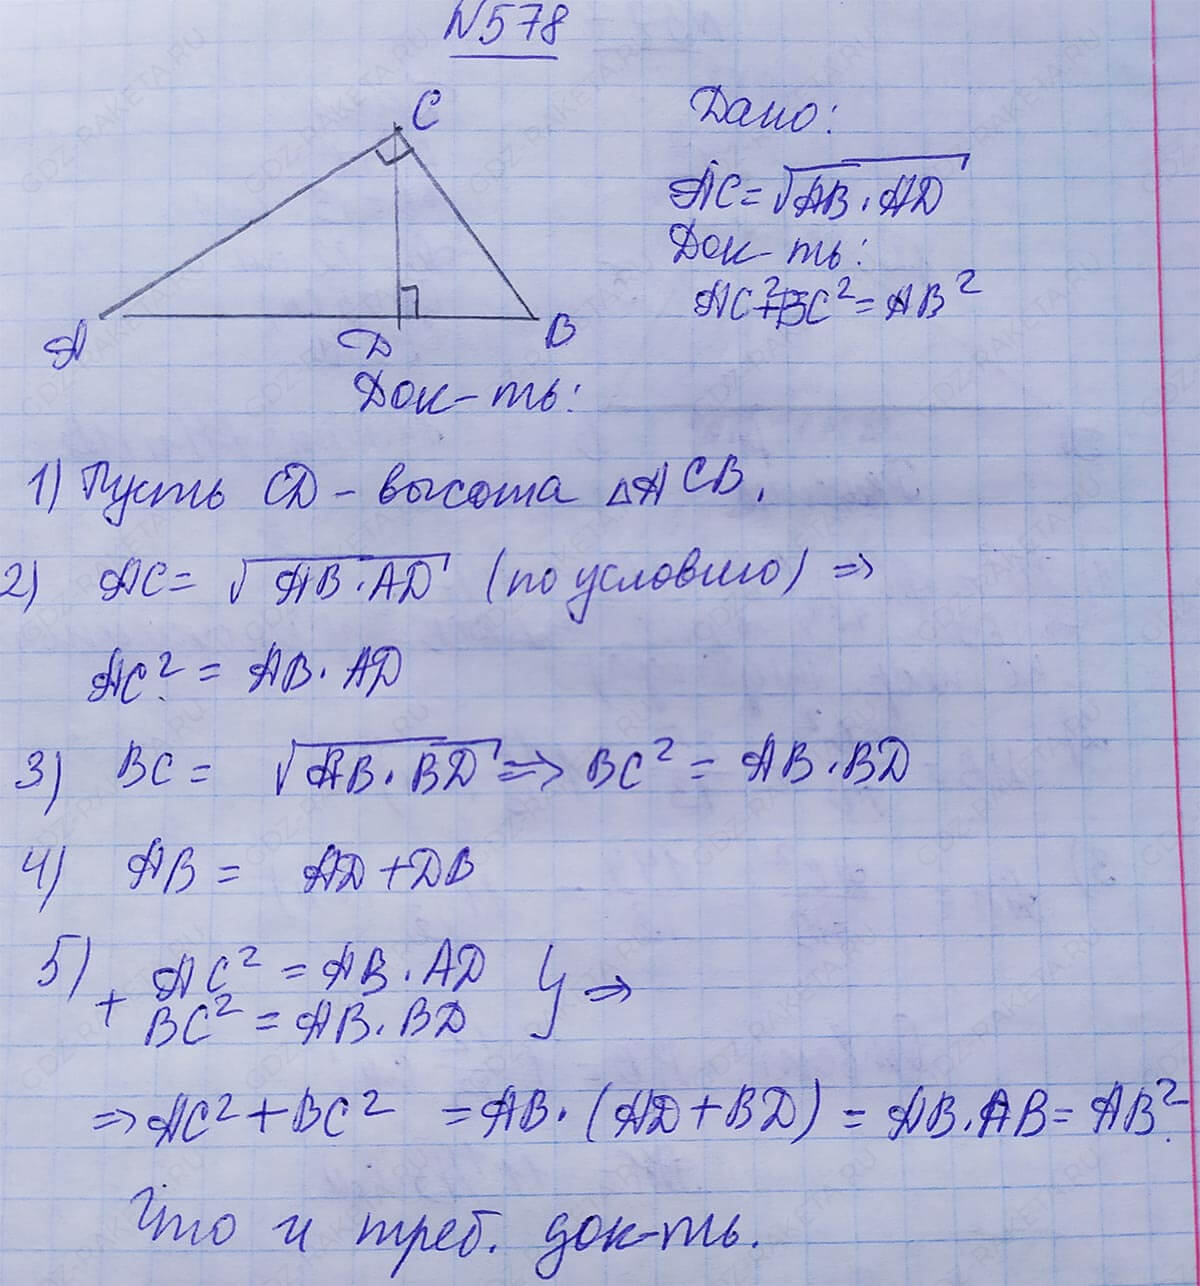 №578
C
A
D
B
Дано:
AC = √AB · AD
Док-ть:
AC² + BC² = AB²
Док-ть:
1) Пусть CD – высота △ACB.
2) AC = √AB · AD (по условию) ⇒
AC² = AB · AD
3) BC = √AB · BD ⇒ BC² = AB · BD
4) AB = AD + DB
5) + AC² = AB · AD } ⇒
BC² = AB · BD
⇒ AC² + BC² = AB · (AD + BD) = AB · AB = AB².
Что и треб. док-ть.